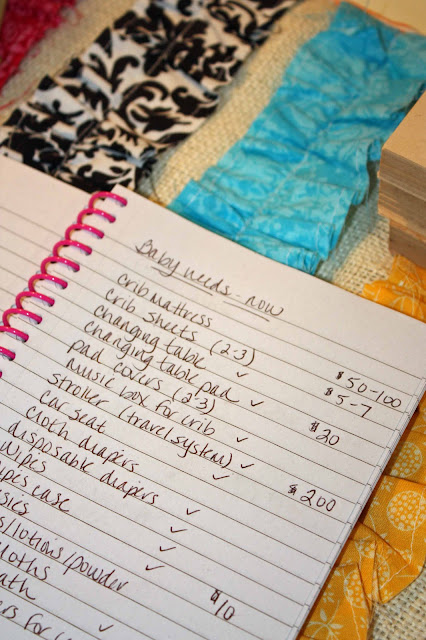 Baby needs - now
crib mattress $50-100
crib sheets (2-3) $5-7
changing table ✓
changing table pad ✓
pad covers (2-3) $20
music box for crib ✓
stroller (travel system) ✓ $200
car seat ✓
cloth diapers
disposable diapers ✓
wipes ✓
ipes case ✓
sics $10
s/lotions/powder
loths
ath ✓
ers for